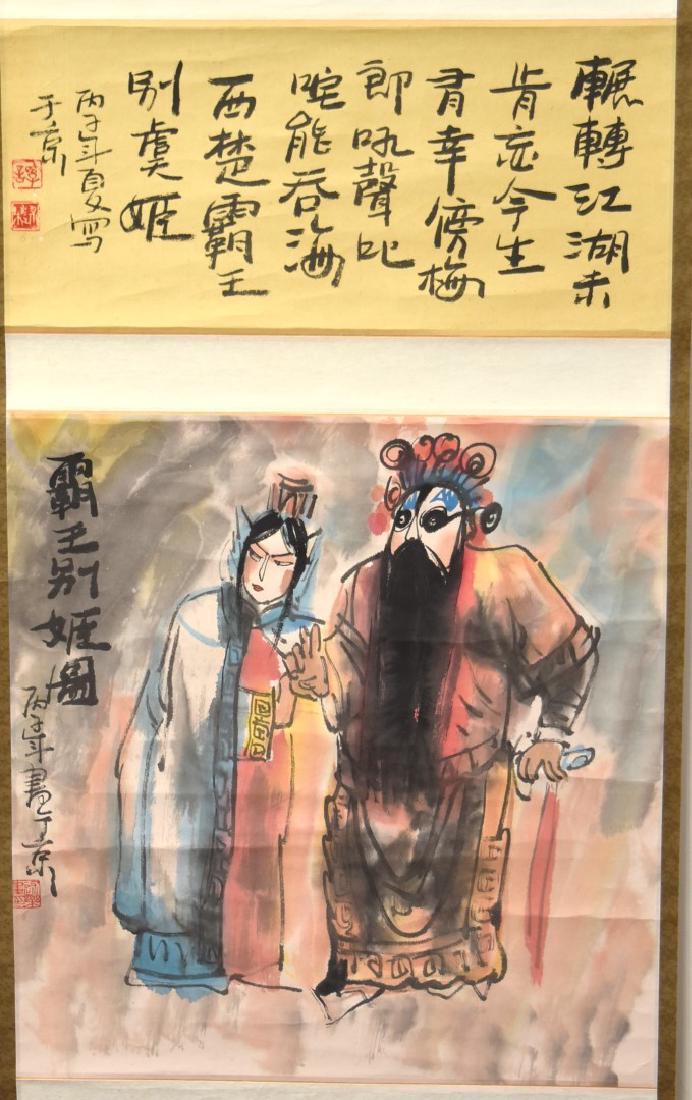 輾轉江湖未
肯忘今生
有幸傍梅
郎吼聲叱
咤能吞海
西楚霸王
別虞姬
丙子年夏写
于京
霸王別姬圖
丙子年畫于京